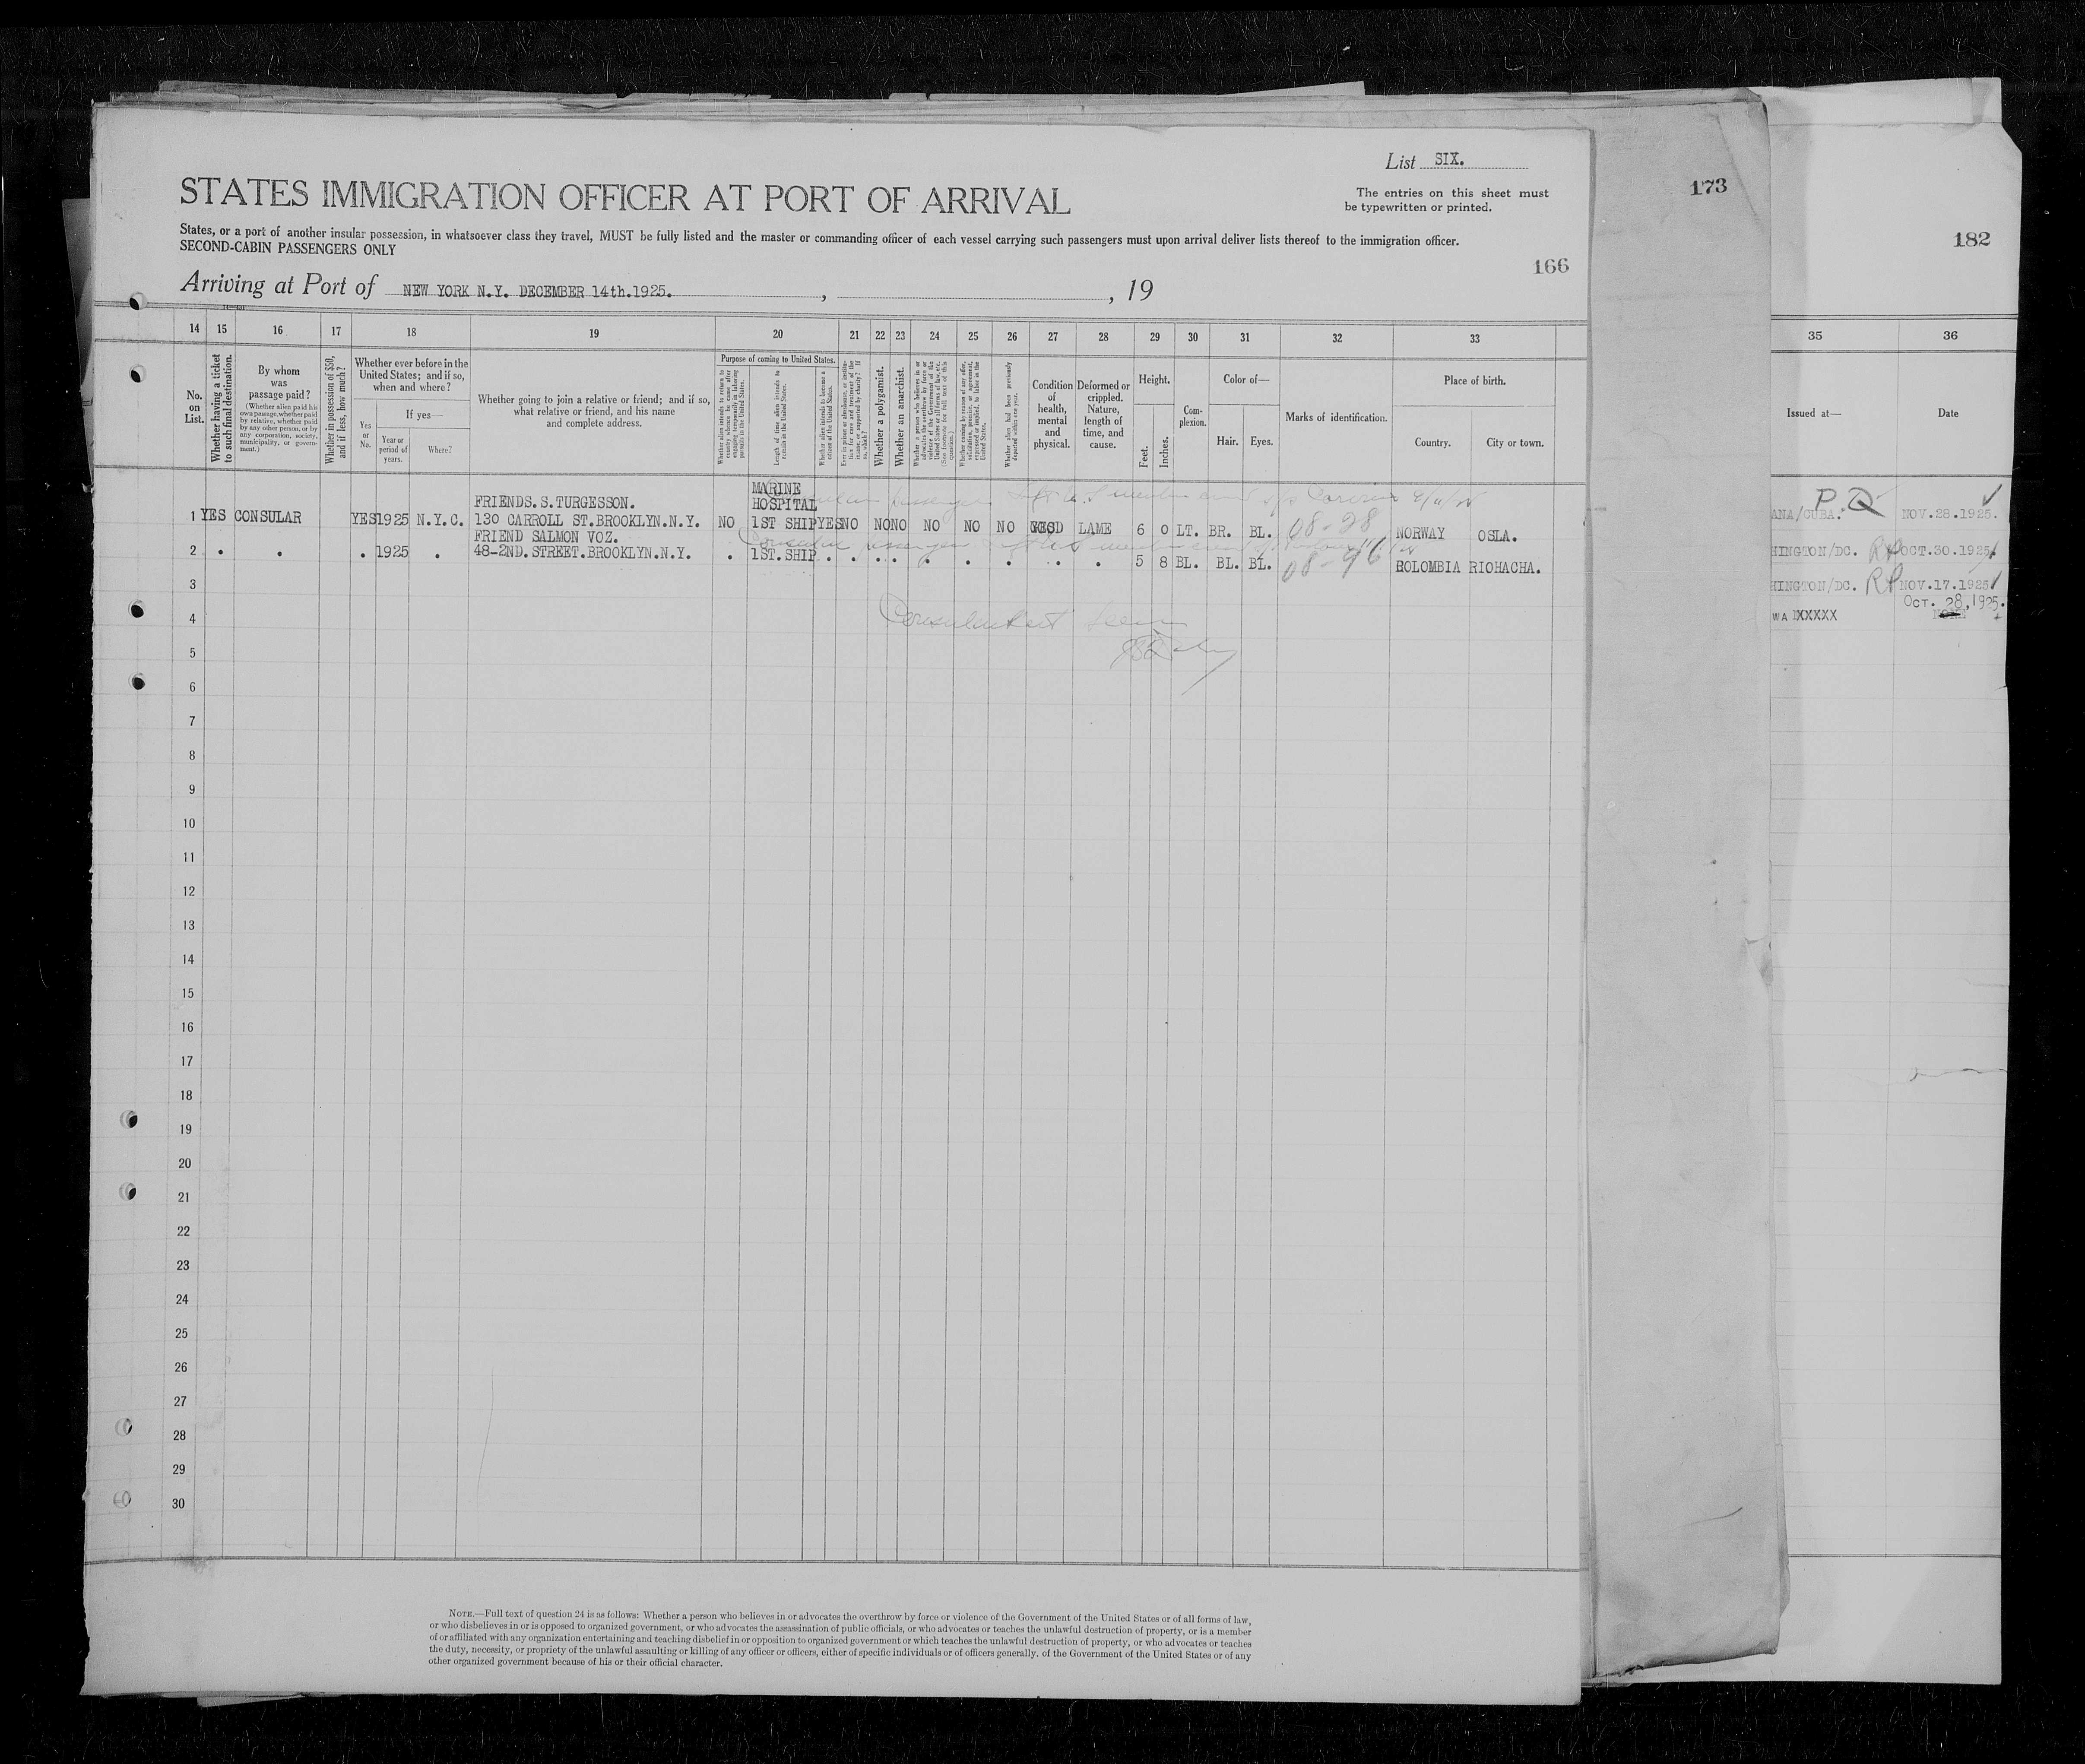 List SIX.
The entries on this sheet must
be typewritten or printed.
173
182
STATES IMMIGRATION OFFICER AT PORT OF ARRIVAL
States, or a port of another insular possession, in whatsoever class they travel, MUST be fully listed and the master or commanding officer of each vessel carrying such passengers must upon arrival deliver lists thereof to the immigration officer.
SECOND-CABIN PASSENGERS ONLY
166
Arriving at Port of NEW YORK N.Y. DECEMBER 14th.1925. , , 19
14 15 16 17 18 19 20 21 22 23 24 25 26 27 28 29 30 31 32 33 35 36
No. on List.
Whether having a ticket to such final destination.
By whom was passage paid?
(Whether alien paid his own passage, whether paid by relative, whether paid by any other person, or by any corporation, society, municipality, or government.)
Whether in possession of $50, and if less, how much?
Whether ever before in the United States; and if so, when and where?
Yes or No.
If yes—
Year or period of years.
Where?
Whether going to join a relative or friend; and if so, what relative or friend, and his name and complete address.
Purpose of coming to United States.
Whether alien intends to return to country whence he came after engaging temporarily in laboring pursuits in the United States.
Length of time alien intends to remain in the United States.
Whether alien intends to become a citizen of the United States.
Ever in prison or almshouse, or institution for care and treatment of the insane, or supported by charity? If so, which?
Whether a polygamist.
Whether an anarchist.
Whether a person who believes in or advocates the overthrow by force or violence of the Government of the United States or all forms of law, etc. (See footnote for full text of this question.)
Whether coming by reason of any offer, solicitation, promise, or agreement, expressed or implied, to labor in the United States.
Whether alien had been previously deported within one year.
Condition of health, mental and physical.
Deformed or crippled. Nature, length of time, and cause.
Height.
Feet.
Inches.
Complexion.
Color of—
Hair.
Eyes.
Marks of identification.
Place of birth.
Country.
City or town.
Issued at—
Date
MARINE
FRIENDS.S.TURGESSON. HOSPITAL
1 YES CONSULAR YES 1925 N.Y.C. 130 CARROLL ST.BROOKLYN.N.Y. NO 1ST SHIP YES NO NO NO NO NO NO LAME 6 0 LT. BR. BL. 08-28 NORWAY OSLA.
FRIEND SALMON VOZ.
2 . . . 1925 . 48-2ND.STREET.BROOKLYN.N.Y. . 1ST.SHIP . . . . . . . . . 5 8 BL. BL. BL. 08-96 COLOMBIA RIOHACHA.
3
4
5
6
7
8
9
10
11
12
13
14
15
16
17
18
19
20
21
22
23
24
25
26
27
28
29
30
P.Q
ANA/CUBA. NOV.28.1925.
HINGTON/DC. OCT.30.1925
HINGTON/DC. NOV.17.1925
OCT. 28,1925.
WA XXXXX NONE
NOTE.—Full text of question 24 is as follows: Whether a person who believes in or advocates the overthrow by force or violence of the Government of the United States or of all forms of law,
or who disbelieves in or is opposed to organized government, or who advocates the assassination of public officials, or who advocates or teaches the unlawful destruction of property, or is a member
of or affiliated with any organization entertaining and teaching disbelief in or opposition to organized government or which teaches the unlawful destruction of property, or who advocates or teaches
the duty, necessity, or propriety of the unlawful assaulting or killing of any officer or officers, either of specific individuals or of officers generally, of the Government of the United States or of any
other organized government because of his or their official character.